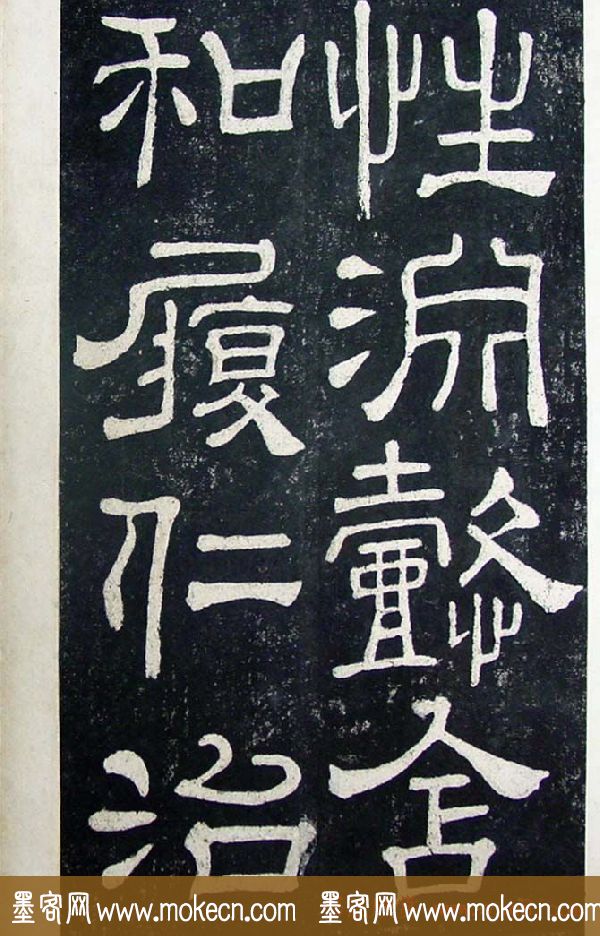 性淵懿含
和履仁治
墨客网 www.mokecn.com 墨客网 www.mokecn.com